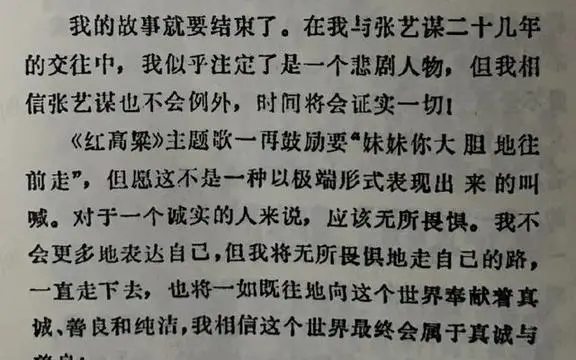 我的故事就要结束了。在我与张艺谋二十几年
的交往中，我似乎注定了是一个悲剧人物，但我相
信张艺谋也不会例外，时间将会证实一切！
《红高粱》主题歌一再鼓励要“妹妹你大胆地往
前走”，但愿这不是一种以极端形式表现出来的叫
喊。对于一个诚实的人来说，应该无所畏惧。我不
会更多地表达自己，但我将无所畏惧地走自己的路，
一直走下去，也将一如既往地向这个世界奉献着真
诚、善良和纯洁，我相信这个世界最终会属于真诚与